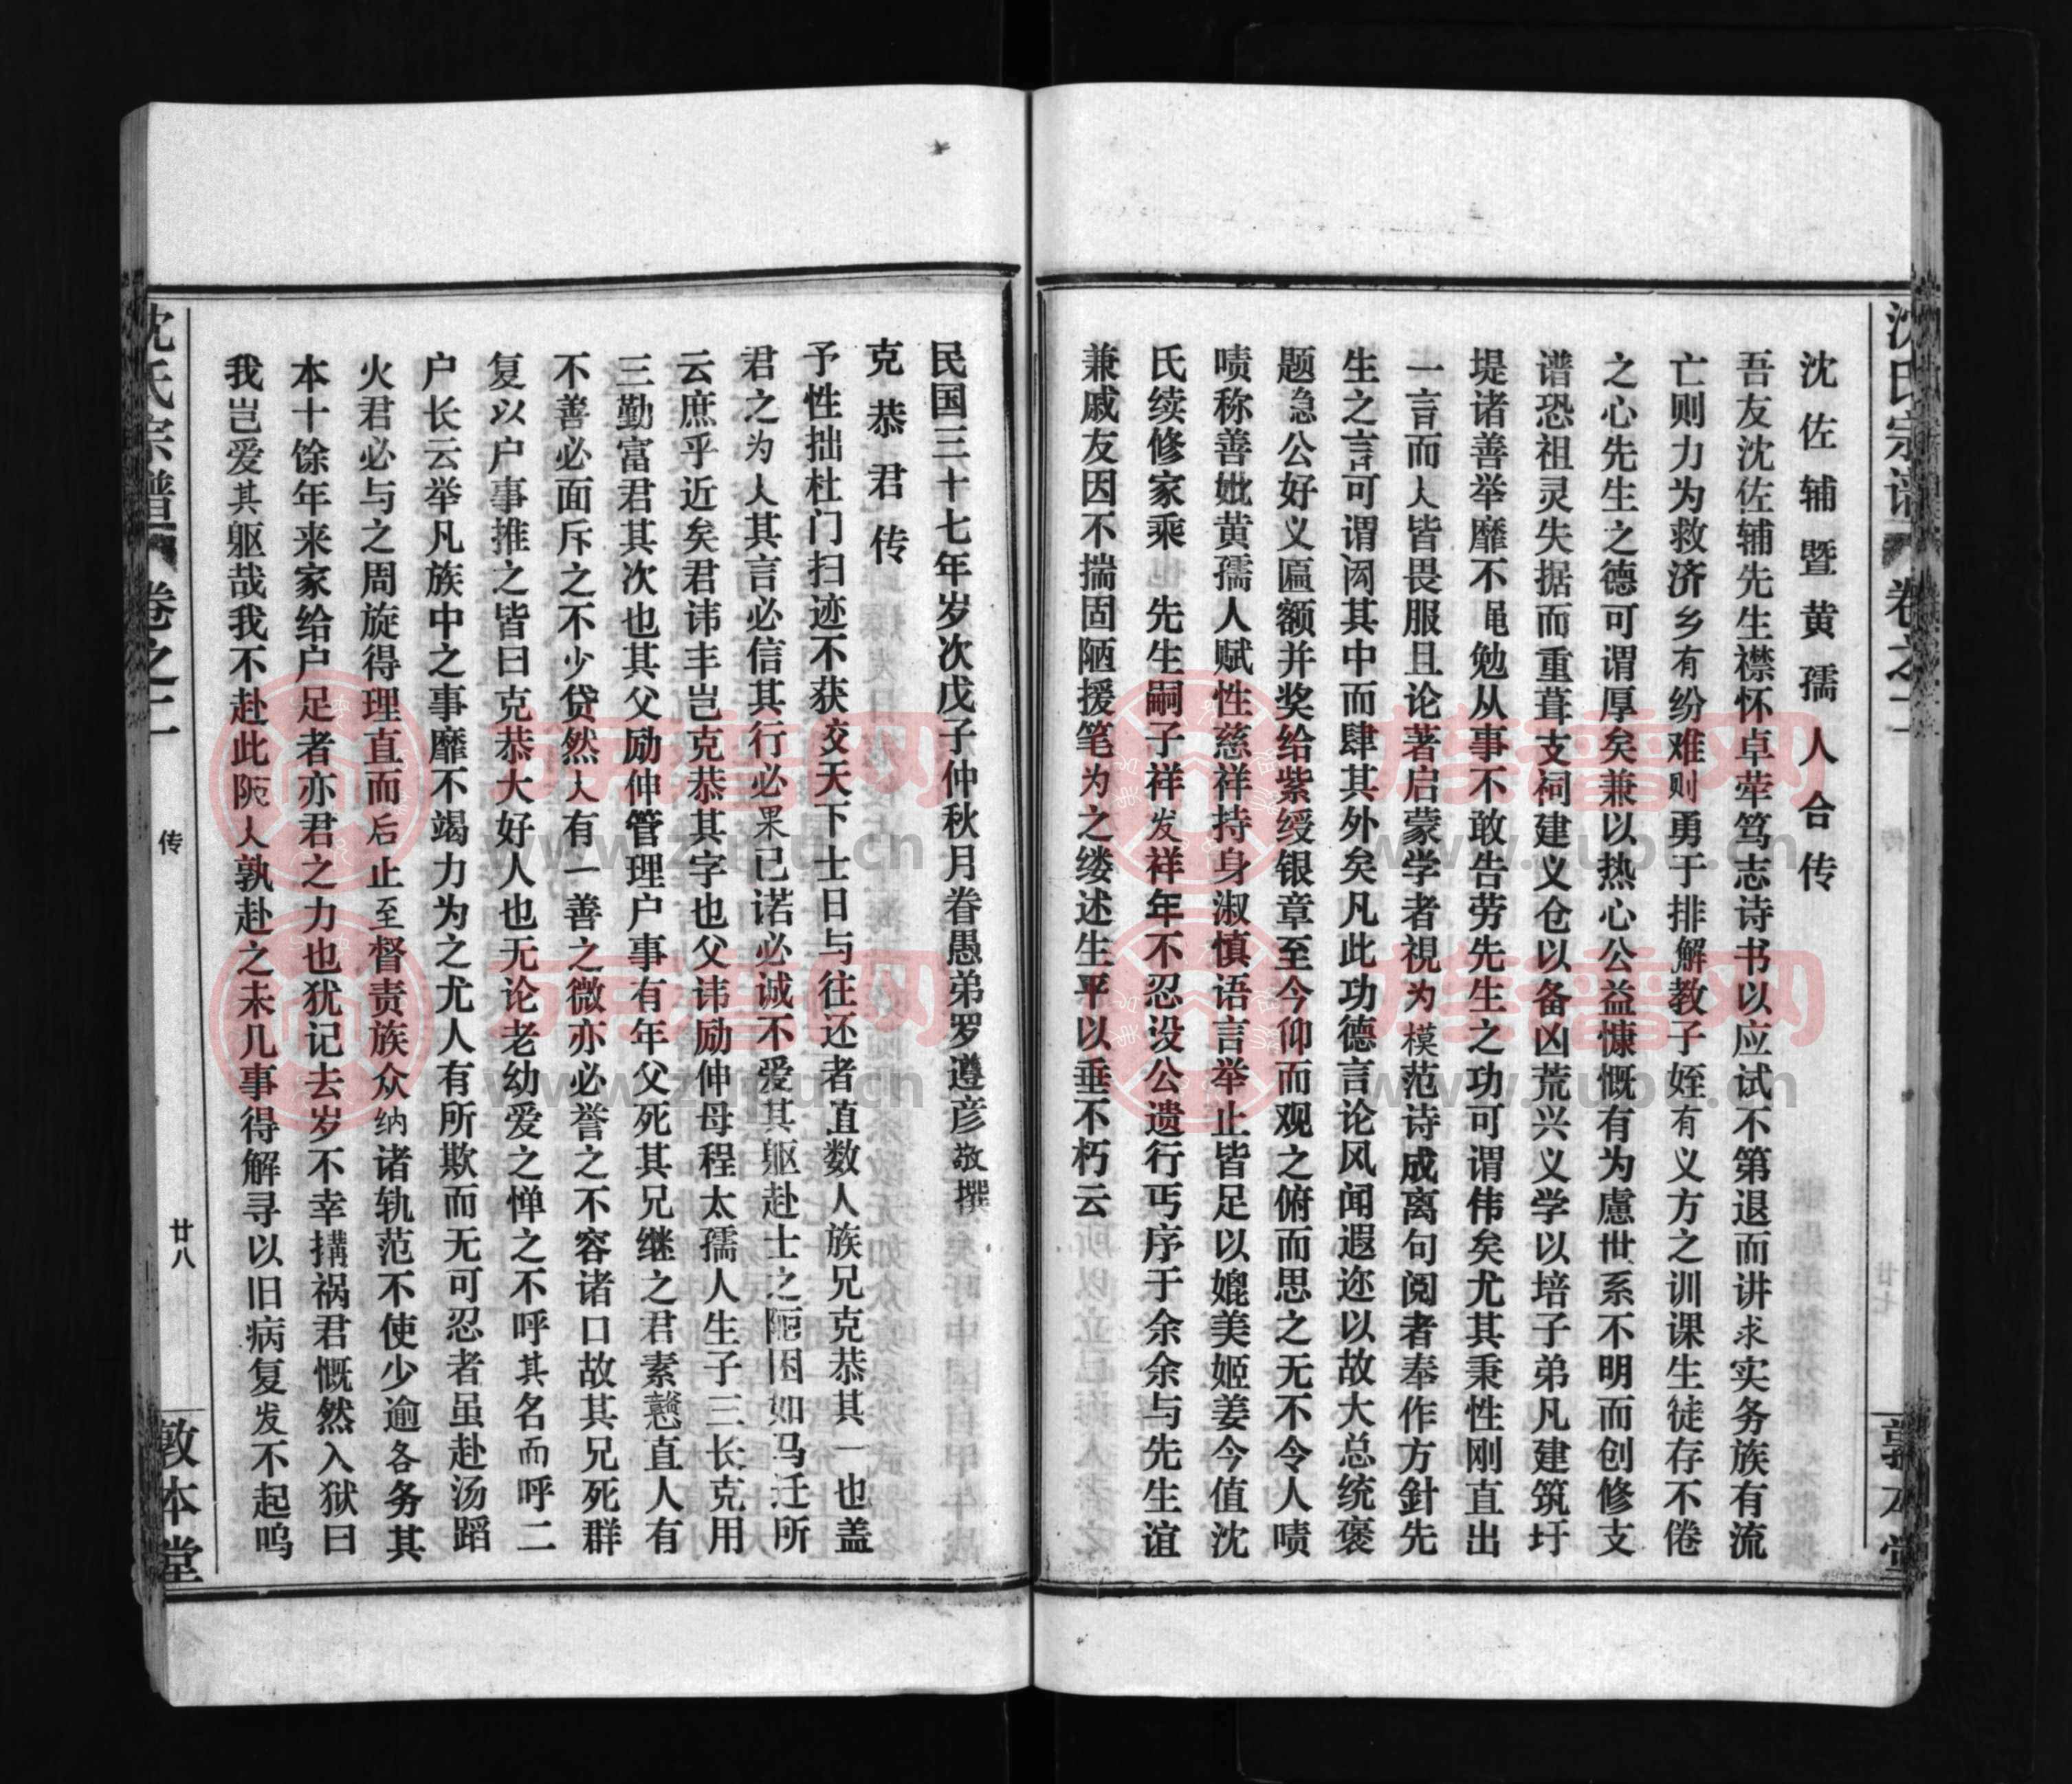 沈氏宗谱 卷之二
沈佐辅暨黄孺人合传
吾友沈佐辅先生襟怀卓荦笃志诗书以应试不第退而讲求实务族有流
亡则力为救济乡有纷难则勇于排解教子姪有义方之训课生徒存不倦
之心先生之德可谓厚矣兼以热心公益慷慨有为慮世系不明而创修支
谱恐祖灵失据而重葺支祠建义仓以备凶荒兴义学以培子弟凡建筑圩
堤诸善举靡不黾勉从事不敢告劳先生之功可谓伟矣尤其秉性刚直出
一言而人皆畏服且论著启蒙学者視为模范诗成离句阅者奉作方針先
生之言可谓闳其中而肆其外矣凡此功德言论风闻遐迩以故大总统褒
题急公好义匾额并奖给紫绶银章至今仰而观之俯而思之无不令人啧
啧称善妣黄孺人赋性慈祥持身淑慎语言举止皆足以媲美姬姜今值沈
氏续修家乘 先生嗣子祥发祥年不忍没公遗行丐序于余余与先生谊
兼戚友因不揣固陋援笔为之缕述生平以垂不朽云
民国三十七年岁次戊子仲秋月眷愚弟罗遵彦敬撰
克恭君传
予性拙杜门扫迹不获交天下士日与往还者直数人族兄克恭其一也盖
君之为人其言必信其行必果已诺必诚不爱其躯赴士之阨困如马迁所
云庶乎近矣君讳丰岂克恭其字也父讳励伸母程太孺人生子三长克用
三勤富君其次也其父励伸管理户事有年父死其兄继之君素戆直人有
不善必面斥之不少贷然人有一善之微亦必誉之不容诸口故其兄死群
复以户事推之皆曰克恭大好人也无论老幼爱之惮之不呼其名而呼二
户长云举凡族中之事靡不竭力为之尤人有所欺而无可忍者虽赴汤蹈
火君必与之周旋得理直而后止至督责族众纳诸轨范不使少逾各务其
本十馀年来家给户足者亦君之力也犹记去岁不幸搆祸君慨然入狱曰
我岂爱其躯哉我不赴此阨人孰赴之未几事得解寻以旧病复发不起呜
沈氏宗谱 卷之二
传
廿八
敦本堂
族谱网
www.zupu.cn
族谱网
www.zupu.cn
族谱网
www.zupu.cn
族谱网
www.zupu.cn